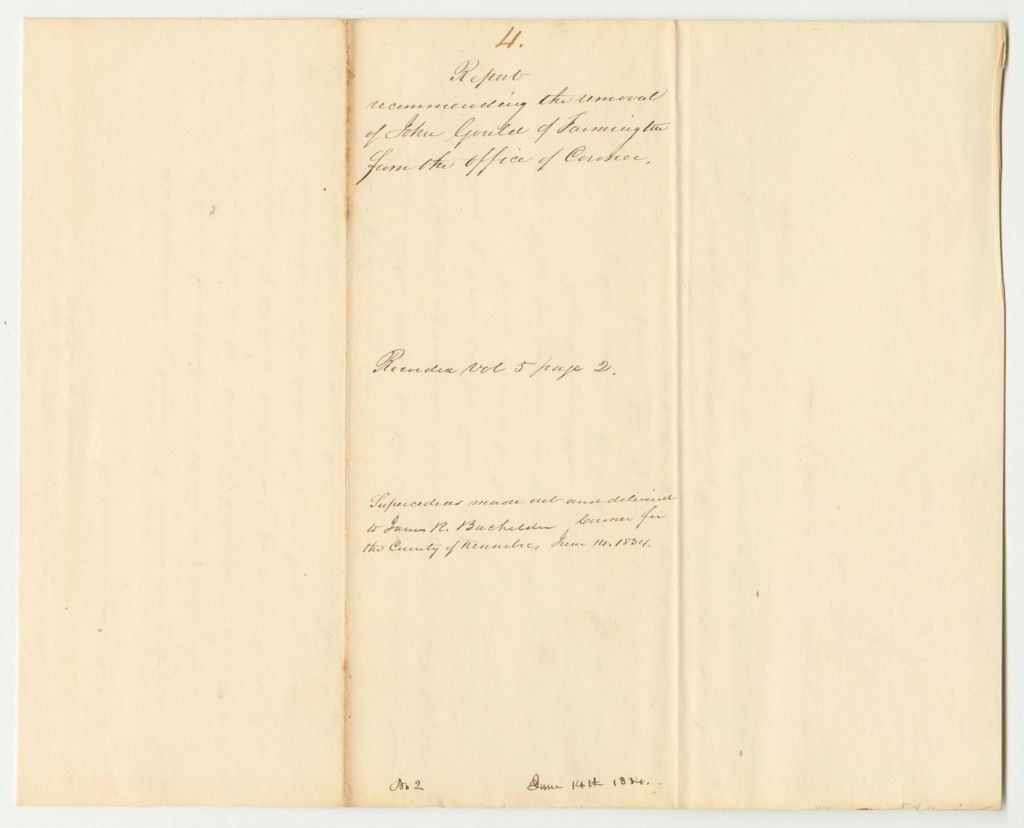 4.
Report
recommending the removal
of John Gould of Farmington
from the office of Coroner.
Recorded Vol 5 page 2.
Supercedeas made out and delivered
to James R. Bachelder Coroner for
the County of Kennebec, June 14. 1834.
No 2 June 14th 1834.